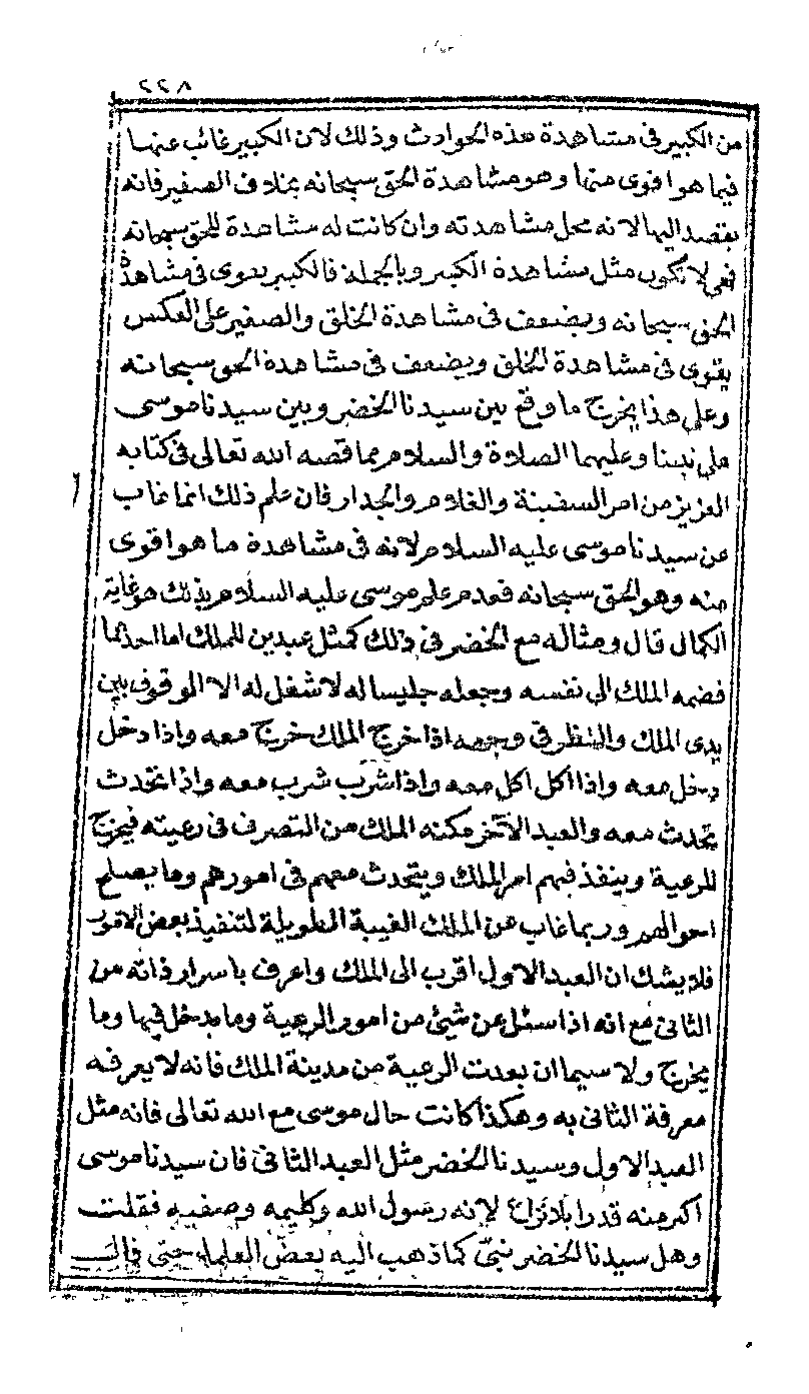 ٢٢٨
من الكبير في مشاهدة هذه الحوادث وذلك لان الكبير غائب عنها
فيما هو اقوى منها وهو مشاهدة الحق سبحانه بخلاف الصغير فانه
يقصد اليها لانه محل مشاهدته وان كانت له مشاهدة للحق سبحانه
فهي لا تكون مثل مشاهدة الكبير وبالجملة فالكبير يقوى في مشاهدة
الحق سبحانه ويضعف في مشاهدة الخلق والصغير على العكس
يقوى في مشاهدة الخلق ويضعف في مشاهدة الحق سبحانه
وعلى هذا يخرج ما وقع بين سيدنا الخضر وبين سيدنا موسى
على نبينا وعليهما الصلاة والسلام مما قصه الله تعالى في كتابه
العزيز من امر السفينة والغلام والجدار فان علم ذلك انما غاب
عن سيدنا موسى عليه السلام لانه في مشاهدة ما هو اقوى
منه وهو الحق سبحانه فعدم علم موسى عليه السلام بذلك هو غاية
الكمال قال ومثاله مع الخضر في ذلك كمثل عبدين للملك اما احدهما
فضمه الملك الى نفسه وجعله جليسا له لا شغل له الا الوقوف بين
يدى الملك والنظر في وجهه اذا خرج الملك خرج معه واذا دخل
دخل معه واذا اكل اكل معه واذا شرب شرب معه واذا تحدث
تحدث معه والعبد الآخر مكنه الملك من التصرف في رعيته فيخرج
للرعية وينفذ فيهم امر الملك ويتحدث معهم في امورهم وما يصلح
احوالهم وربما غاب عن الملك الغيبة الطويلة لتنفيذ بعض الامور
فلا يشك ان العبد الاول اقرب الى الملك واعرف باسرار ذاته من
الثاني مع انه اذا سئل عن شيئ من امور الرعية وما يدخل فيها وما
يخرج ولا سيما ان بعدت الرعية من مدينة الملك فانه لا يعرفه
معرفة الثاني به وهكذا كانت حال موسى مع الله تعالى فانه مثل
العبد الاول وسيدنا الخضر مثل العبد الثاني فان سيدنا موسى
اكبر منه قدرا بلا نزاع لانه رسول الله وكليمه وصفيه فقلت
وهل سيدنا الخضر نبي كما ذهب اليه بعض العلماء حتى قال